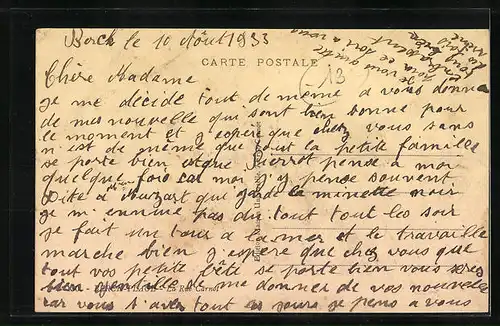 Berck le 10 Août 1933
CARTE POSTALE
13
Je vous quitte
Chère Madame
je me décide tout de meme a vous donna
de mas nouvelle qui sont bien bonne pour
le moment et j'espere que chez vous sans
n'est de même que tout la petite famille
se porte bien Pierrot pense a moi
quelque fois car moi j'y pense souvent
Dite a Mouzart qui garde la minette noir
je m'ennuie pas du tout tout les soir
je fait un tour a la mer et le travaille
marche bien j'espere que chez vous que
tout vos petite bête se porte bien vous seres
bien gentille de me donner de vos nouvelle
car vous s'avez tout les jours je pens a vous